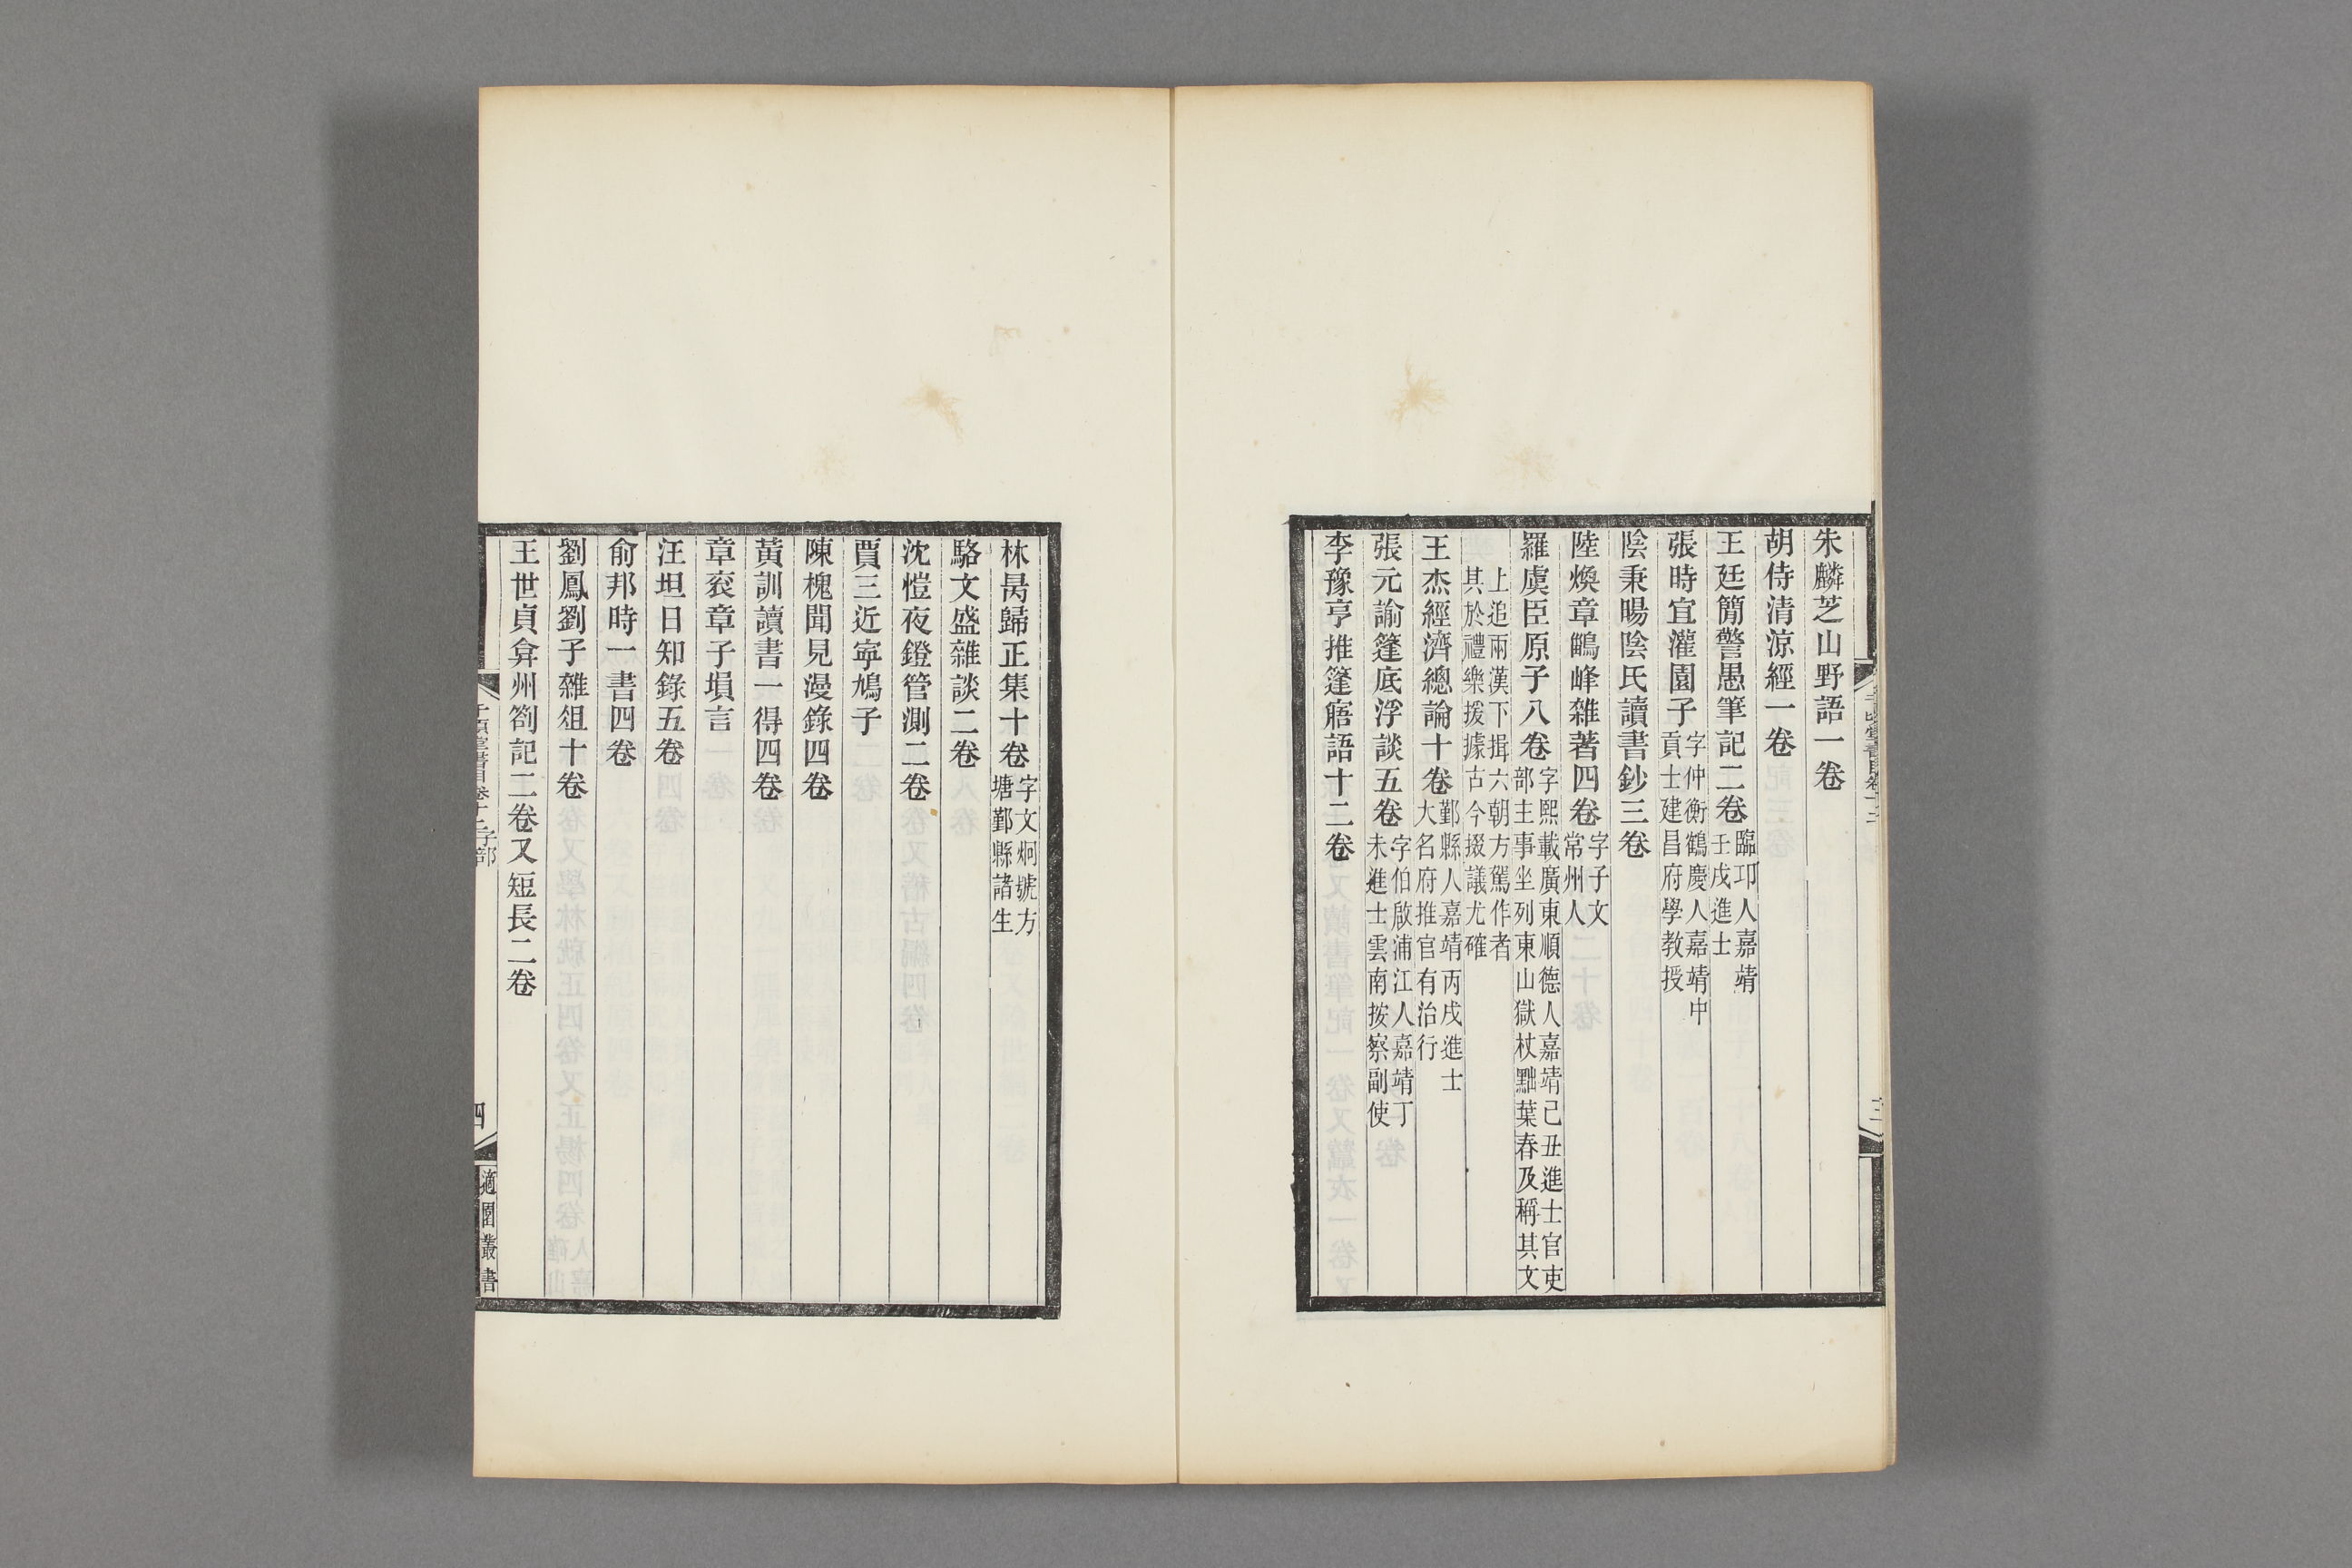 朱麟芝山野語一卷
胡侍清涼經一卷
王廷簡警愚筆記二卷臨邛人嘉靖壬戌進士
張時宜灌園子字仲衡鶴慶人嘉靖中貢士建昌府學教授
陰秉暘陰氏讀書鈔三卷
陸煥章鷳峰雜著四卷字子文常州人
羅虞臣原子八卷字熙載廣東順德人嘉靖己丑進士官吏部主事坐列東山獄杖黜葉春及稱其文
上追兩漢下揖六朝方駕作者其於禮樂援據古今掇議尤確
王杰經濟總論十卷鄞縣人嘉靖丙戌進士大名府推官有治行
張元諭篷底浮談五卷字伯啟浦江人嘉靖丁未進士雲南按察副使
李豫亨推篷寤語十二卷
林昺歸正集十卷字文炯號方塘鄞縣諸生
駱文盛雜談二卷
沈愷夜鐙管測二卷
賈三近寧鳩子
陳槐聞見漫錄四卷
黃訓讀書一得四卷
章袞章子塤言
汪坦日知錄五卷
俞邦時一書四卷
劉鳳劉子雜俎十卷
王世貞弇州劄記二卷又短長二卷
千頃堂書目卷十二子部
四
適園叢書